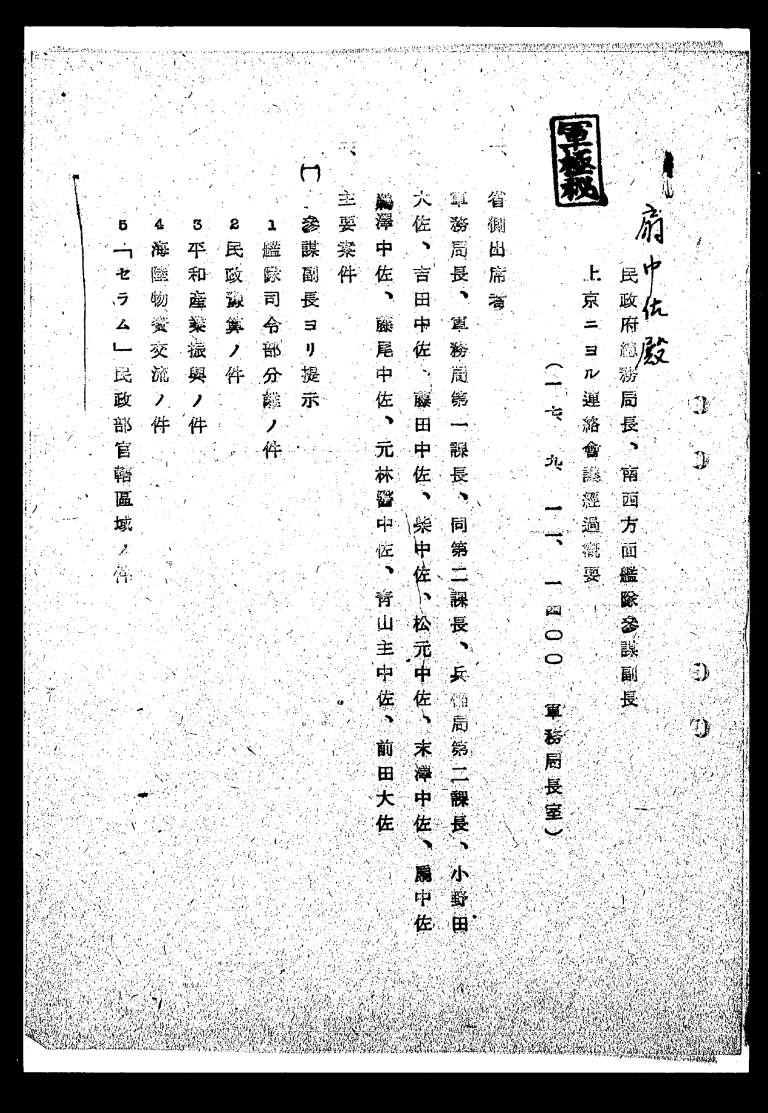 軍極秘
扇中佐殿
民政府總務局長、南西方面艦隊參謀副長
上京ニヨル連絡會議經過概要
(一七、九、一一、一四〇〇 軍務局長室)
一、省側出席者
軍務局長、軍務局第一課長、同第二課長、兵備局第二課長、小野田
大佐、吉田中佐、藤田中佐、柴中佐、松元中佐、末澤中佐、扇中佐
鵜澤中佐、藤尾中佐、元林醫中佐、青山主中佐、前田大佐
二、主要案件
(一)參謀副長ヨリ提示
1 艦隊司令部分離ノ件
2 民政豫算ノ件
3 平和產業振興ノ件
4 海陸物資交流ノ件
5 「セラム」民政部官轄區域ノ件